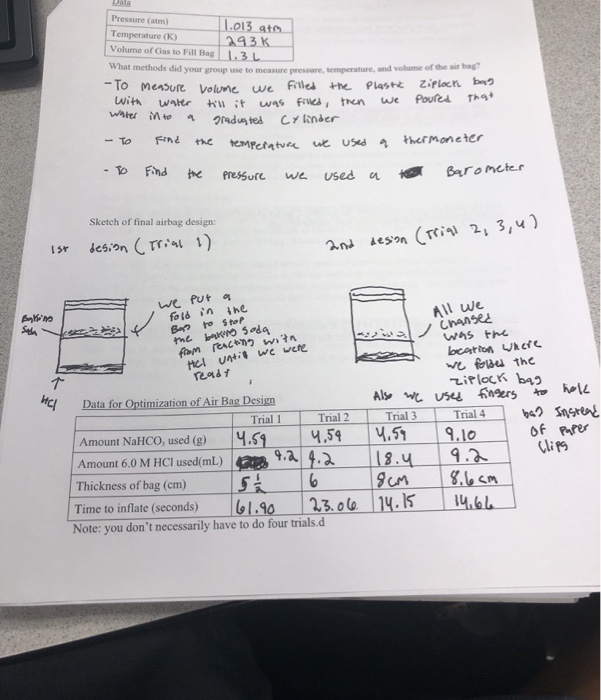 Data
Pressure (atm) 1.013 atm
Temperature (K) 293 K
Volume of Gas to Fill Bag 1.3 L
What methods did your group use to measure pressure, temperature, and volume of the air bag?
- To measure volume we filled the plastic ziplock bag
with water till it was filled, then we poured that
water into a graduated cylinder
- To find the temperature we used a thermometer
- To find the pressure we used a Barometer
Sketch of final airbag design:
1st design (Trial 1)
2nd design (Trial 2, 3, 4)
Baking
Soda
HCl
we put a
fold in the
Bag to stop
the baking soda
from reacting with
HCl until we were
ready
All we
changed
was the
location where
we folded the
ziplock bag
Also we used fingers to hold
bag instead
of paper
clips
Data for Optimization of Air Bag Design
Trial 1 Trial 2 Trial 3 Trial 4
Amount NaHCO3 used (g) 4.59 4.59 4.59 9.10
Amount 6.0 M HCl used(mL) 9.2 9.2 18.4 9.2
Thickness of bag (cm) 5 1/2 6 8cm 8.6cm
Time to inflate (seconds) 61.90 23.06 14.15 14.66
Note: you don't necessarily have to do four trials.d